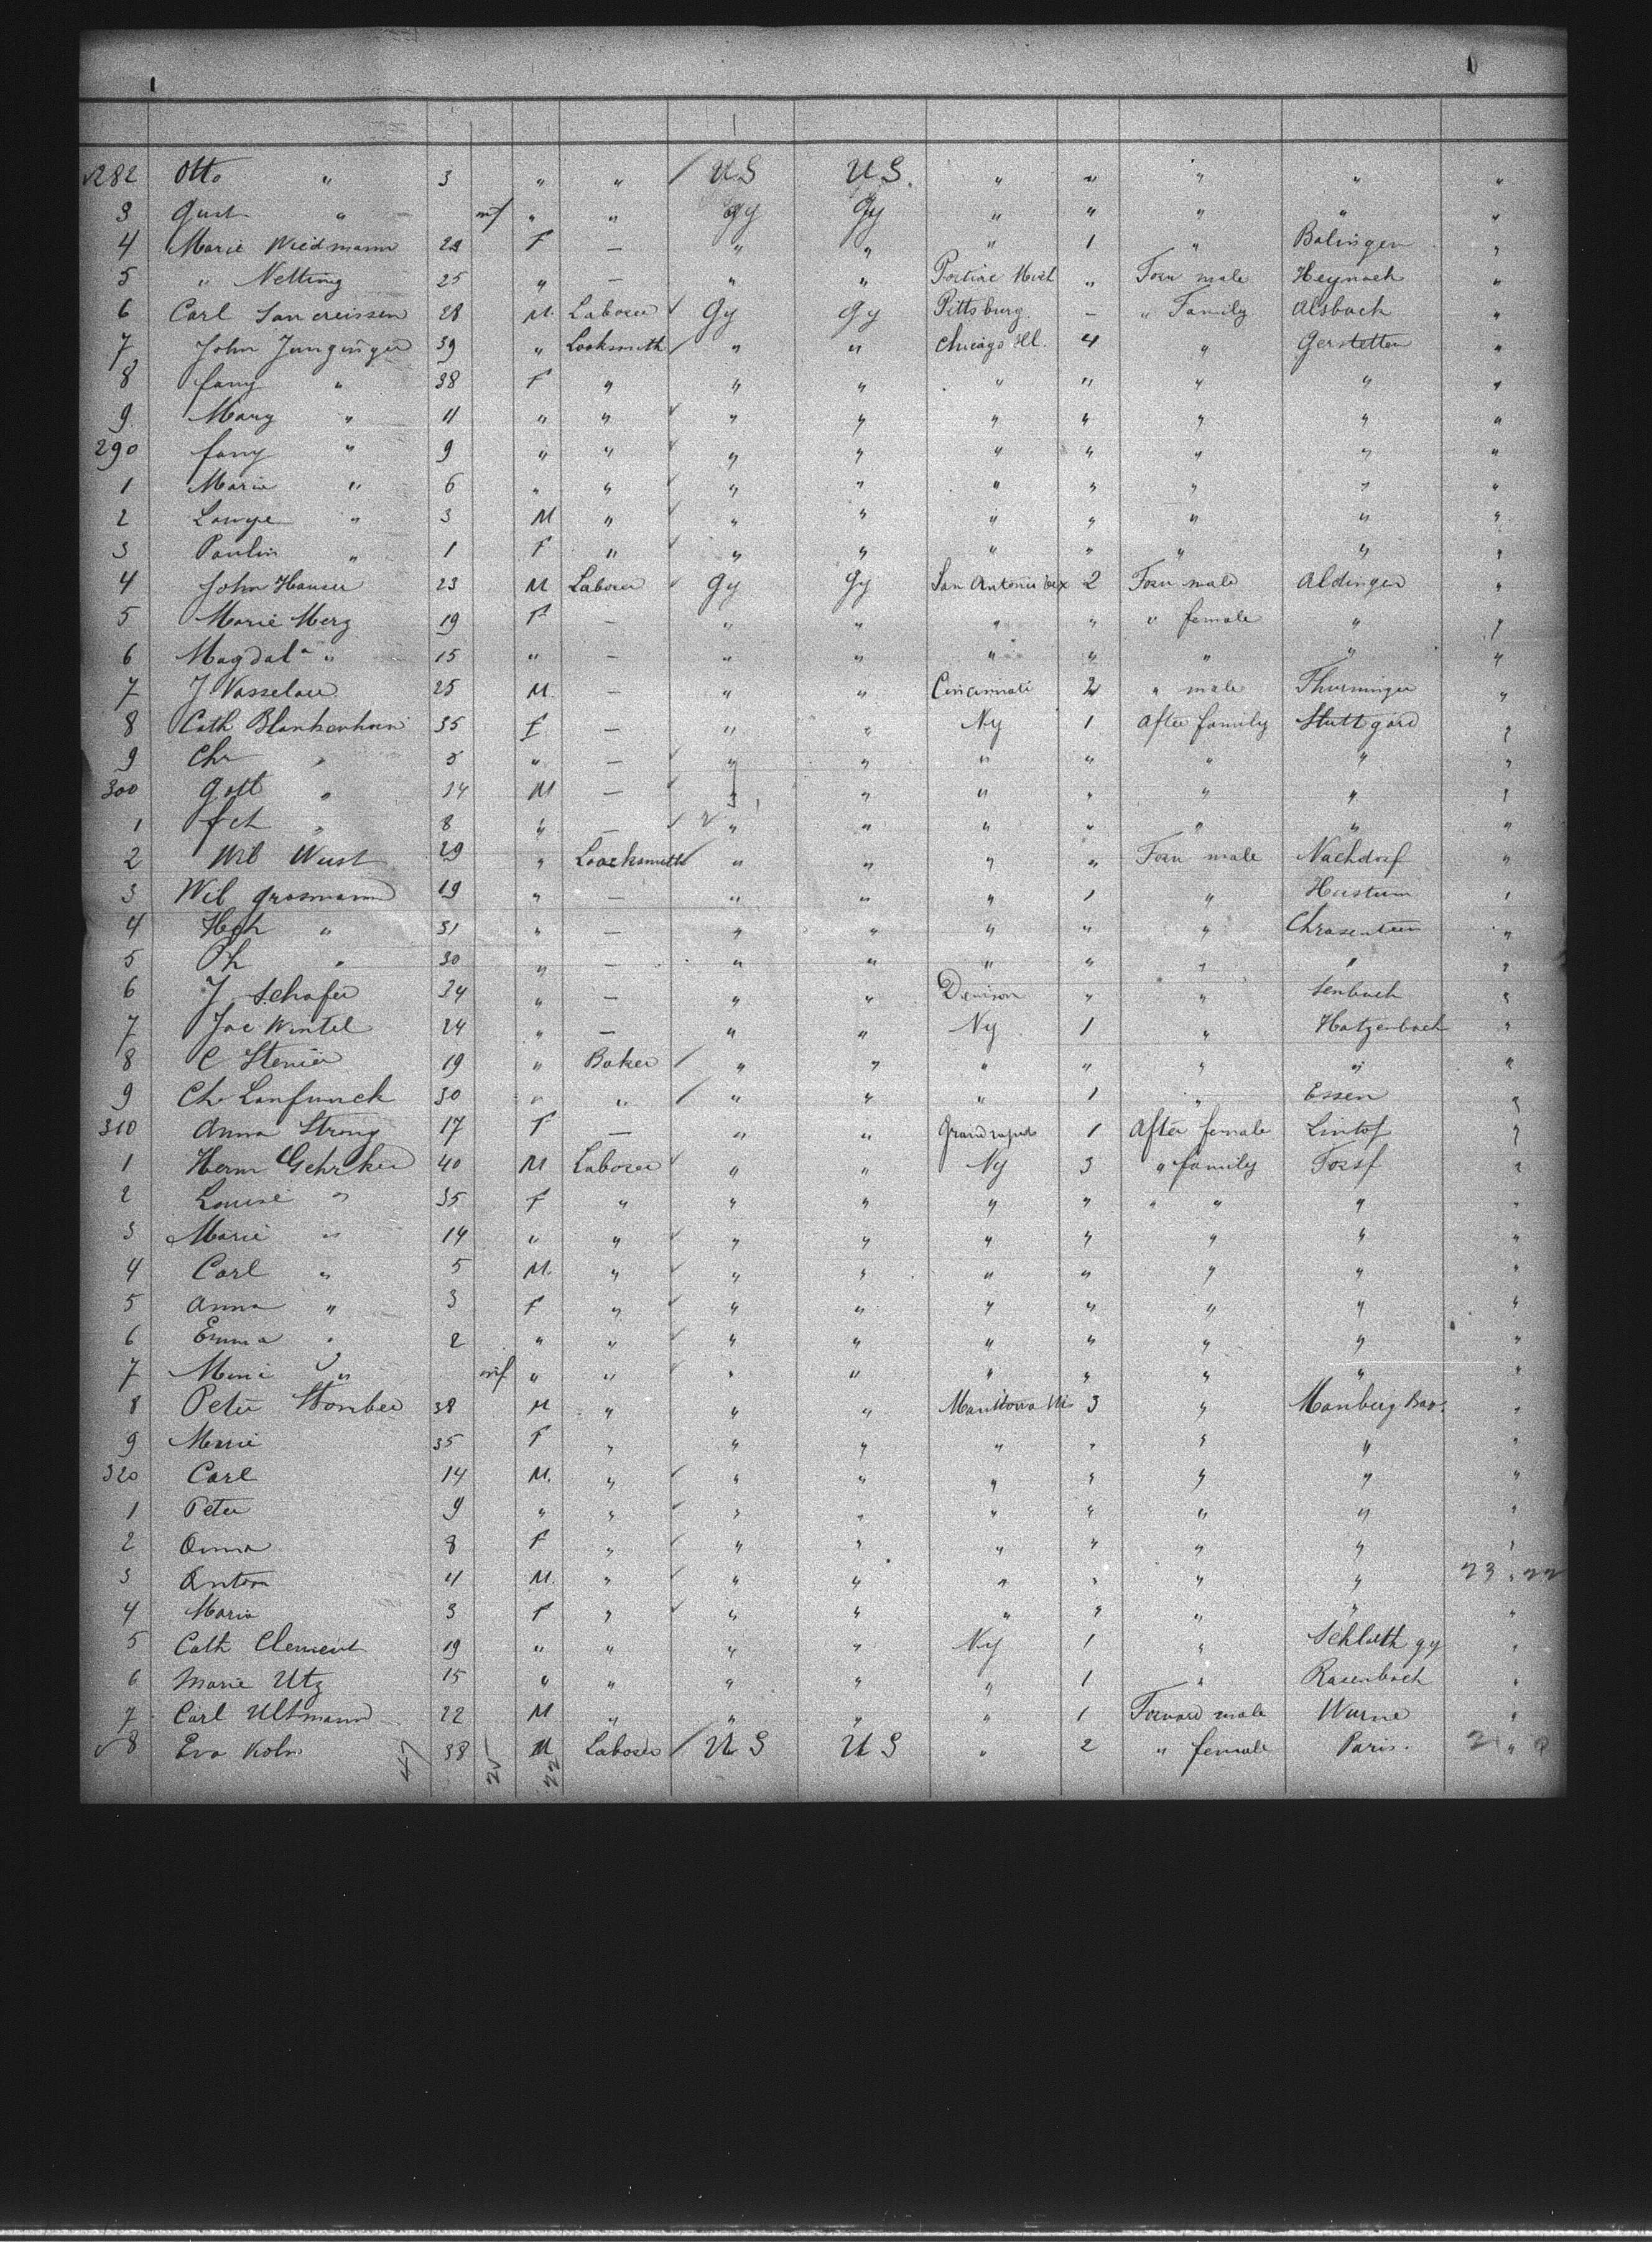 282 Otto " 3 " " U S U S. " " " " "
3 Gust " inf " " Gy Gy " " " " "
4 Marie Wiedmann 29 F — " " " 1 " Balingen "
5 " Netting 25 " — " " Mich " Forw male Heynach "
6 Carl 28 M. Laborer Gy Gy Pittsburg — " Family Alsbach "
7 John Junginger 39 " Locksmith " " Chicago Ill. 4 " Gerstetten "
8 fany " 38 F " " " " " " " "
9 Mary " 11 " " " " " " " " "
290 fany " 9 " " " " " " " " "
1 Marie " 6 " " " " " " " " "
2 " 3 M " " " " " " " "
3 Paulin " 1 F " " " " " " " "
4 John Hauser 23 M Laborer Gy Gy San Antonio Tex 2 Forw male Aldingen "
5 Marie Merz 19 F — " " " " " female " "
6 Magdala " 15 " — " " " " " " "
7 J 25 M. — " " Cincinnati 2 " male "
8 Cath Blankenhorn 35 F — " " Ny 1 After family Stuttgard "
9 Chr " 5 " — " " " " " " "
300 Gott " 14 M — " " " " " " "
1 fch " 8 " — " " " " " " "
2 Wil Wust 29 " Loocksmith " " " " Forw male Nachdorf "
3 Wil Grosmann 19 " — " " " 1 " "
4 " 31 " — " " " " " "
5 Ph " 30 " — " " " " " " "
6 J Schafer 34 " — " " Denison " " Senbach "
7 Jac Wintel 24 " — " " Ny 1 " Hatzenbach "
8 C 19 " Baker " " " " " " "
9 Chr Lanfunck 30 " " " " " 1 " Essen "
310 Anna Strong 17 F — " " Grand rapids 1 After female Lintof "
1 Herm Gehrker 40 M Laborer " " Ny 3 " family "
2 Louise " 35 F " " " " " " " " "
3 Marie " 14 " " " " " " " " "
4 Carl " 5 M. " " " " " " " "
5 Anna " 3 F " " " " " " " "
6 Emma " 2 " " " " " " " " "
7 " inf " " " " " " " " "
8 Peter 38 M " " " 3 " "
9 Marie 35 F " " " " " " " "
320 Carl 14 M. " " " " " " " "
1 Peter 9 " " " " " " " " "
2 Anna 8 F " " " " " " " "
3 Anton 4 M. " " " " " " " 23 " 22
4 Maria 3 F " " " " " " " "
5 Cath Clement 19 " " " " Ny 1 " Gy "
6 Marie Utz 15 " " " " " 1 " Rasenbach "
7 Carl Ultmann 22 M " " " " 1 Forward male Wurne "
8 Eva Kohn 38 M Laborer U S U S " 2 " female Paris. "
47 25 22